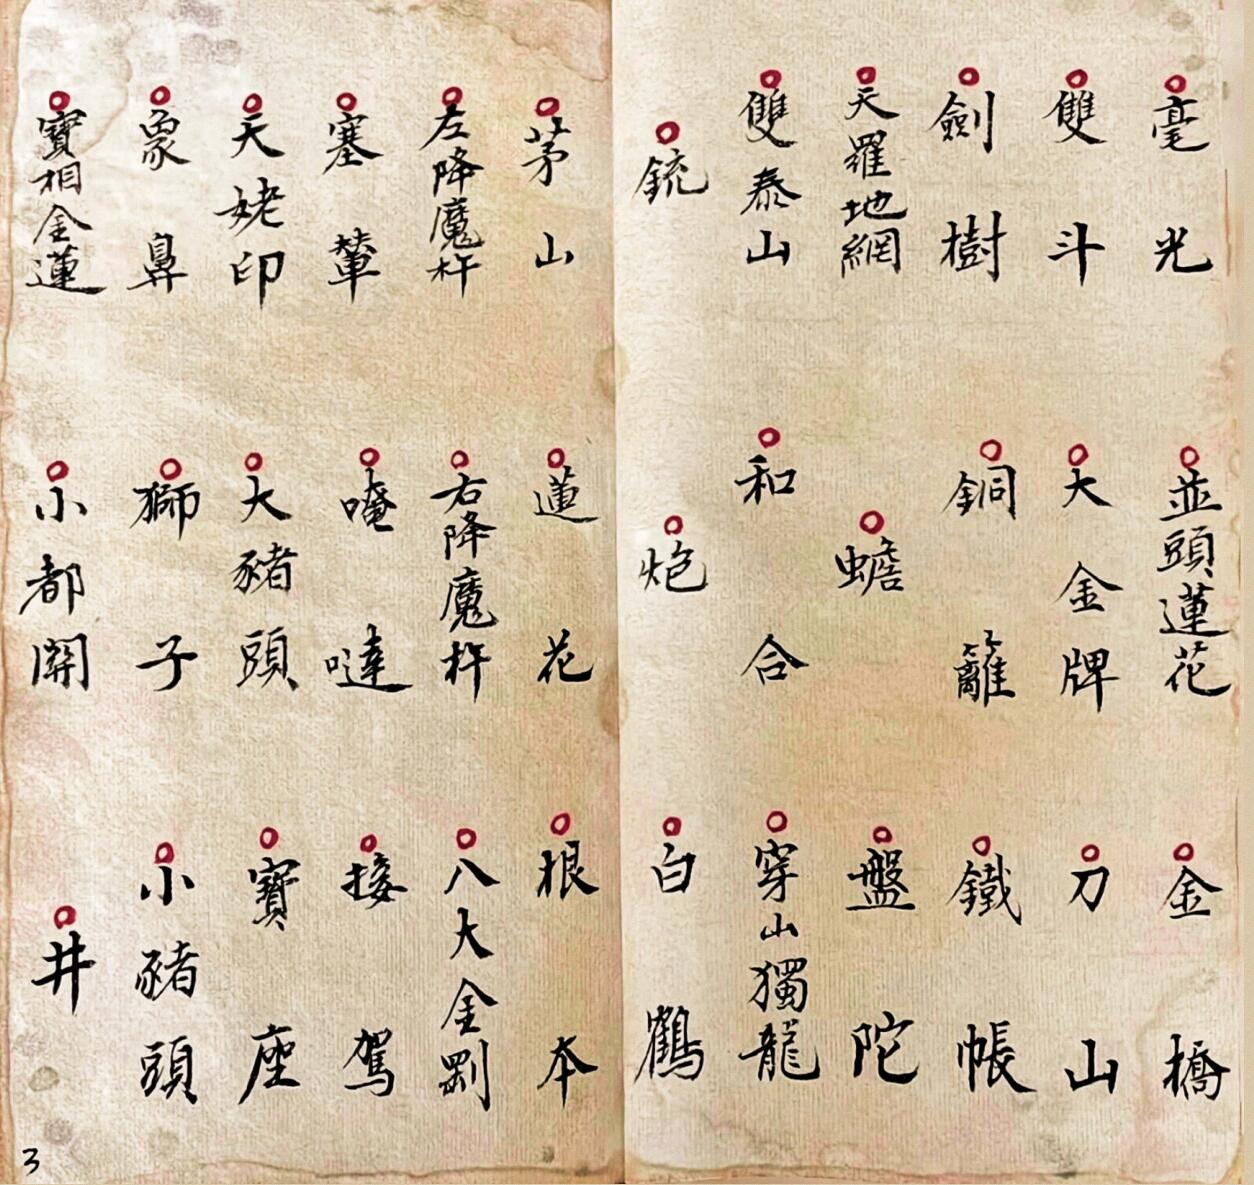 毫光
並頭蓮花
金橋
雙斗
大金牌
刀山
劍樹
銅籬
鐵帳
天羅地網
蟾
盤陀
雙泰山
和合
穿山獨龍
銃
炮
白鶴
茅山
蓮花
根本
左降魔杵
右降魔杵
八大金剛
塞輦
唵噠
接駕
天姥印
大豬頭
寶座
象鼻
獅子
小豬頭
寶相金蓮
小都開
井
3